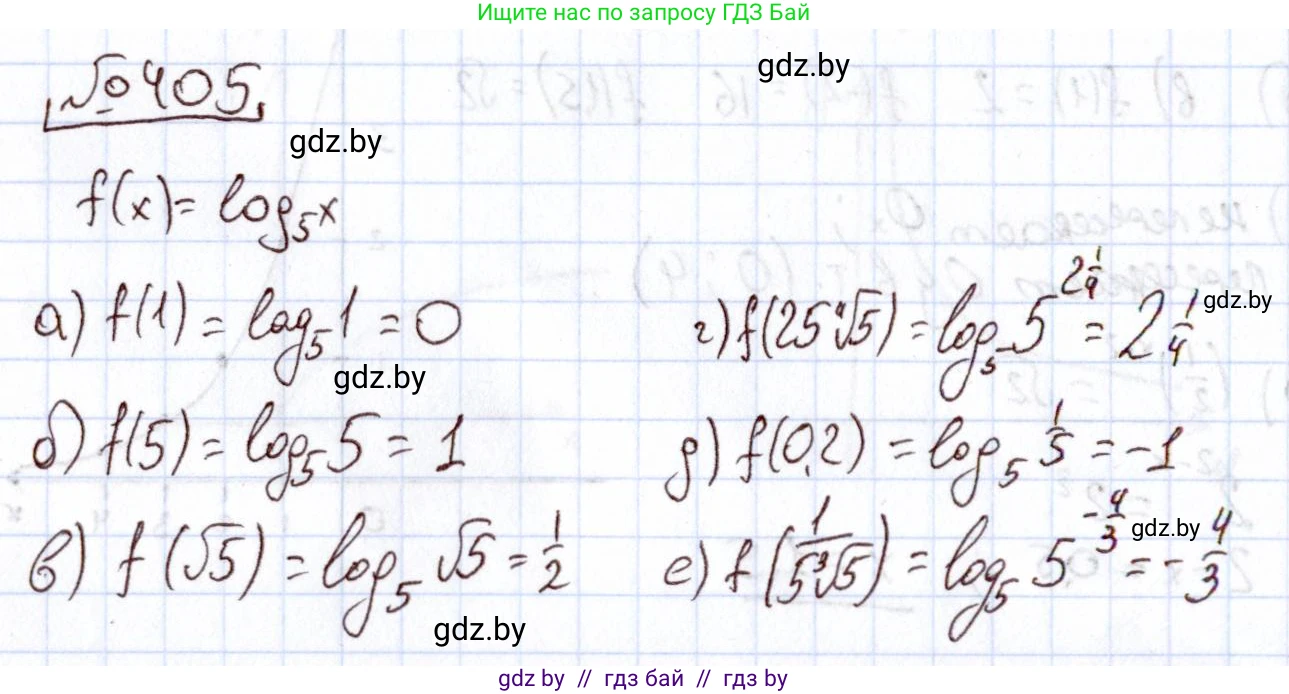 Ищите нас по запросу ГДЗ Бай
№405
gdz.by
gdz.by
f(x) = log₅x
а) f(1) = log₅1 = 0
gdz.by
б) f(5) = log₅5 = 1
в) f(√5) = log₅√5 = 1/2
gdz.by
г) f(25⁴√5) = log₅5^(2 1/4) = 2 1/4
gdz.by
д) f(0,2) = log₅ 1/5 = -1
е) f(1/(5³√5)) = log₅5^(-4/3) = -4/3
gdz.by
gdz.by // гдз бай // гдз by